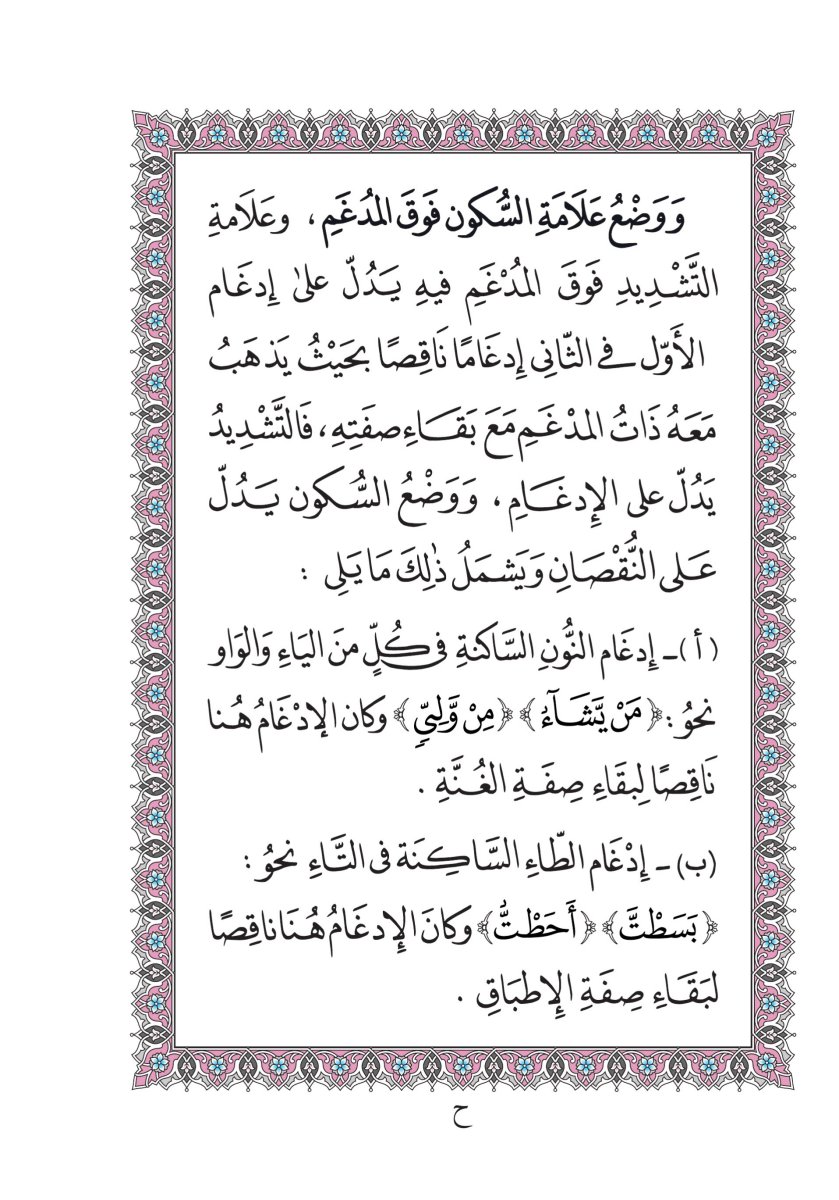 وَوَضْعُ عَلَامَةِ السُّكون فَوقَ المُدغَمِ ، وعَلَامةِ
التَّشْدِيدِ فَوقَ المُدْغَمِ فيهِ يَدُلّ علىٰ إِدغَام
الأَوّل في الثّانِي إِدغَامًا نَاقِصًا بحَيْثُ يَذهَبُ
مَعَهُ ذَاتُ المدْغَم مَعَ بَقَاءِ صفَتِهِ ، فَالتَّشْدِيدُ
يَدُلّ على الإِدغَامِ ، وَوَضْعُ السُّكون يَدُلّ
عَلى النُّقْصَانِ وَيَشمَلُ ذٰلِكَ مَا يَلِى :
(أ) ـ إِدغَام النُّونِ السَّاكنةِ فى كُلٍّ منَ اليَاءِ وَالوَاو
نحوُ : ﴿مَنْ يَّشَآءُ﴾ ﴿مِنْ وَّلِيّٖ﴾ وكان الإدْغَامُ هُنا
نَاقِصًا لِبقَاءِ صِفَةِ الغُنَّةِ .
(ب) ـ إِدْغَام الطّاءِ السَّاكِنَة فى التَّاءِ نحوُ :
﴿بَسَطْتَّ﴾ ﴿أَحَطْتُّ﴾ وكانَ الإِدغَامُ هُنَا ناقِصًا
لبَقَاءِ صِفَةِ الإِطبَاقِ .
ح